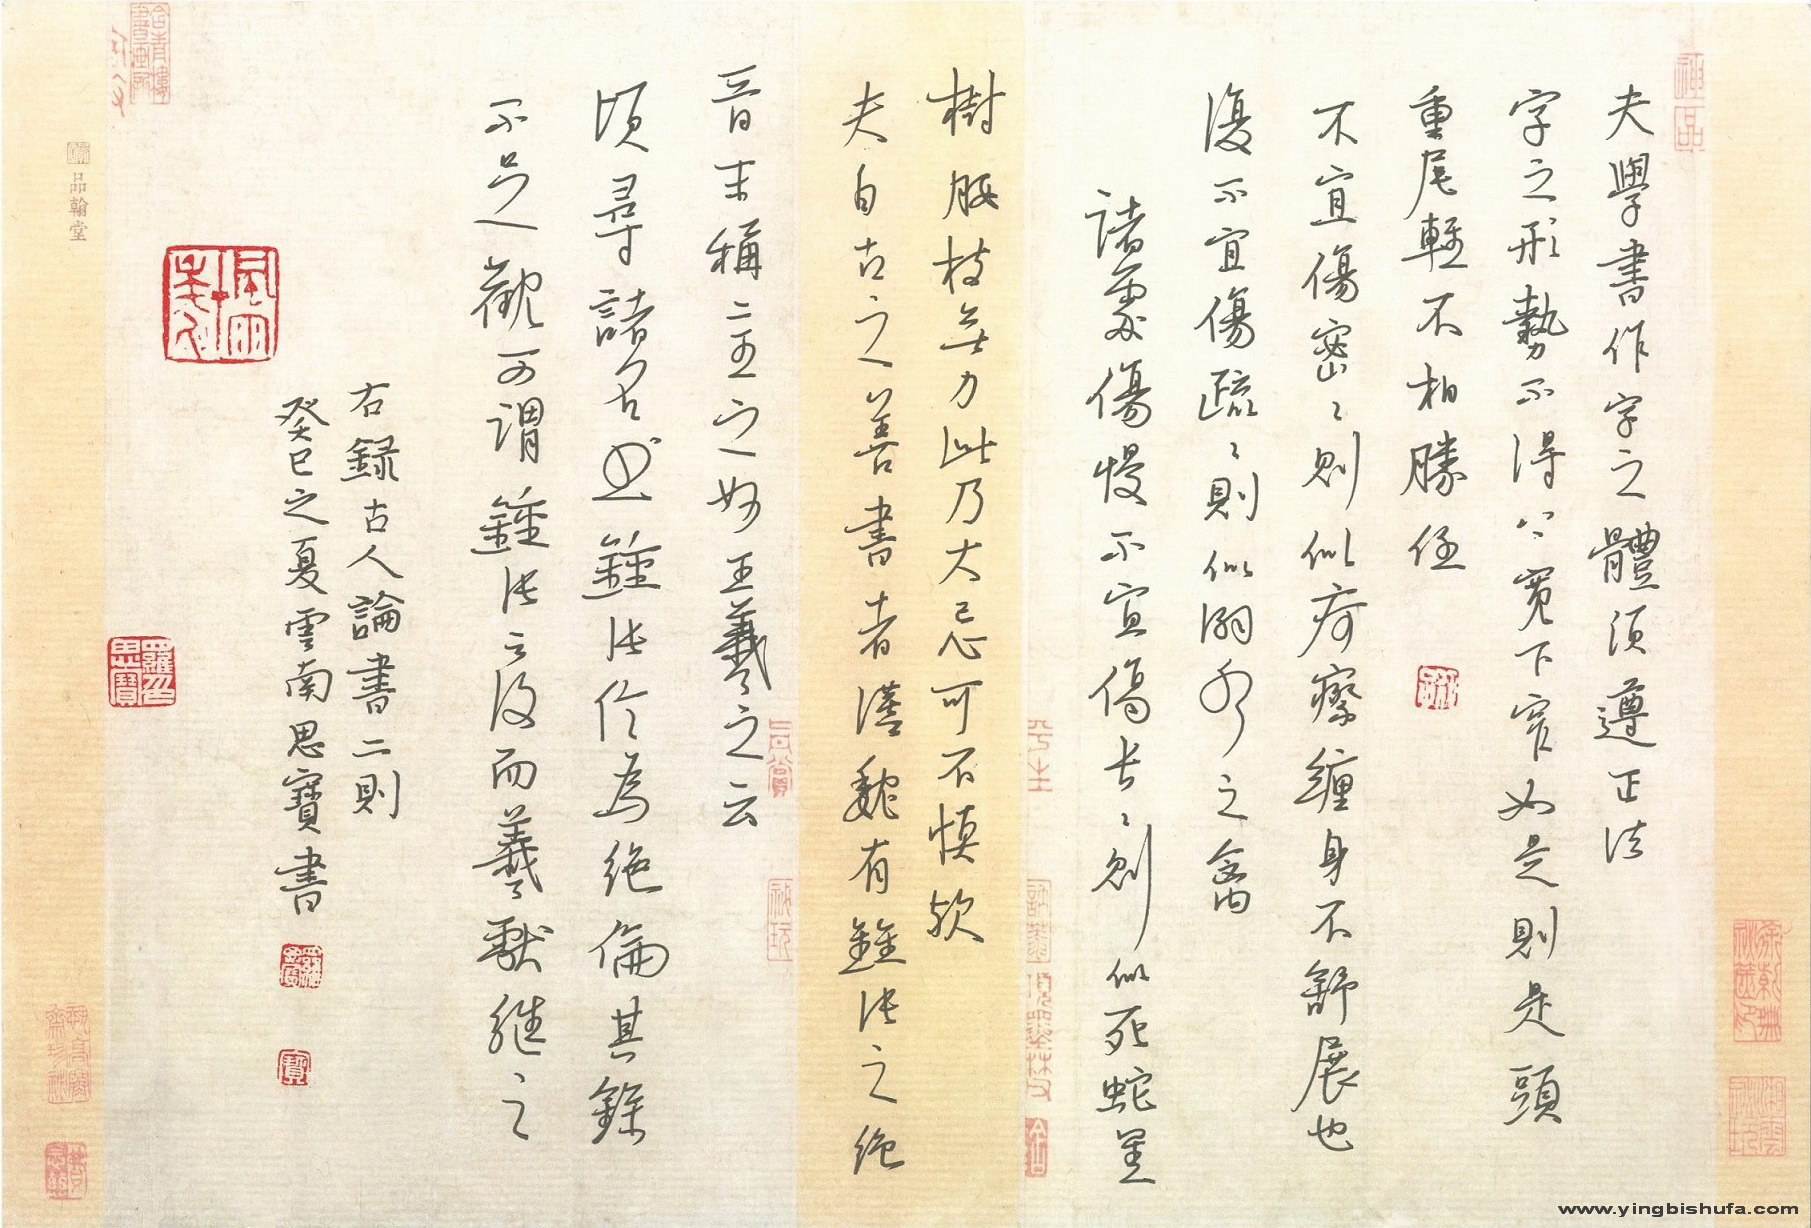 神品
夫學書作字之體須遵正法
字之形勢不得上寬下窄如是則是頭
重尾輕不相勝任
不宜傷密々則似疴瘵纏身不舒展也
復不宜傷疏々則似溺水之禽
諸處傷慢不宜傷長々則似死蛇罣
樹腰枝無力此乃大忌可不慎歟
夫自古之善書者漢魏有鍾張之絕
晉末稱二王之妙王羲之云
頃尋諸名書鍾張信為絕倫其餘
不足觀可謂鍾張云沒而羲獻繼之
右録古人論書二則
癸巳之夏雲南思寶書
品翰堂
www.yingbishufa.com